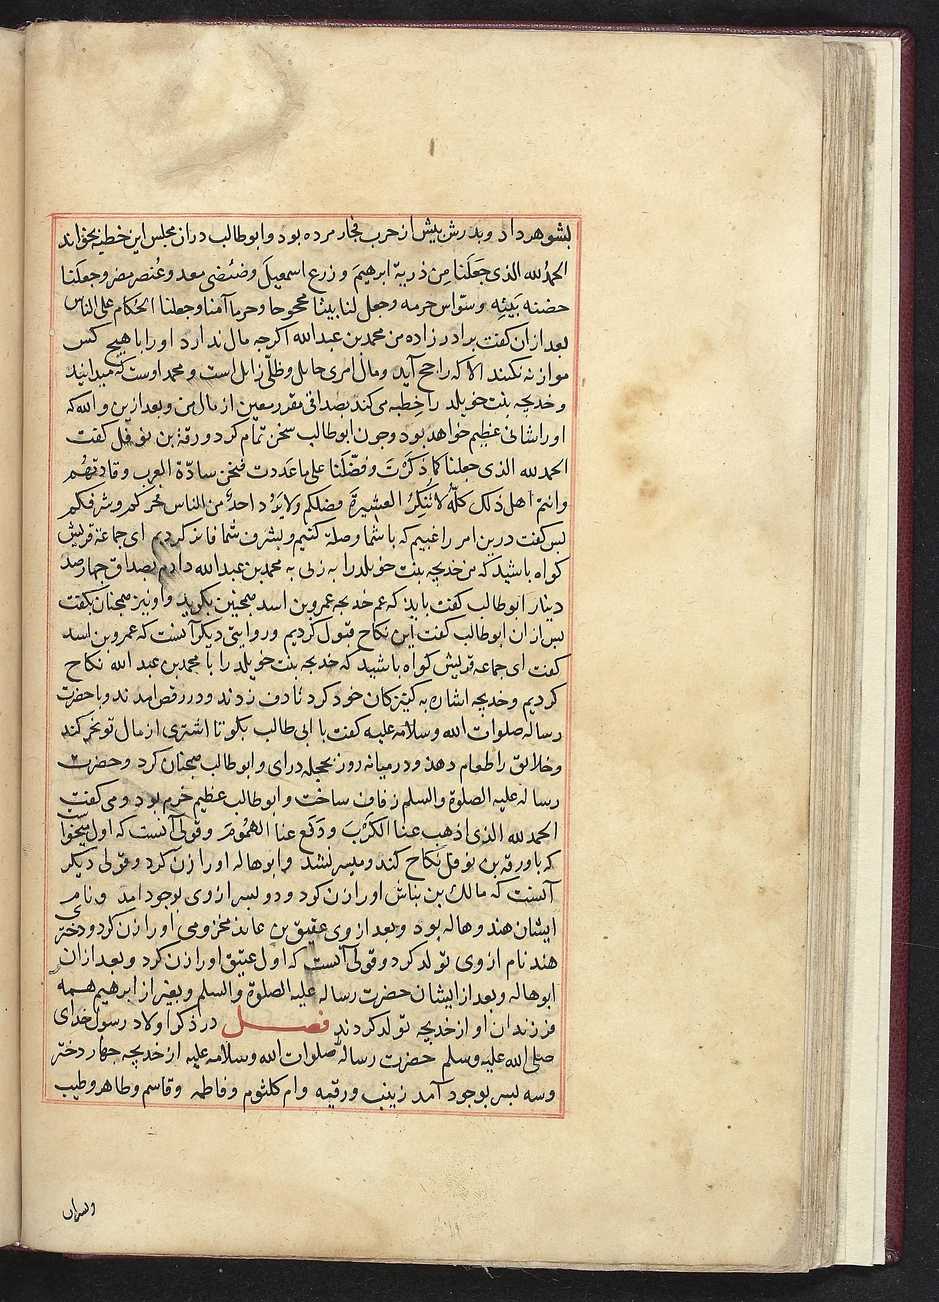 بشوهر داد و پدرش پیش از حرب فجار مرده بود و ابوطالب در ان مجلس این خطبه بخواند
الحمدُ لله الذی جَعَلَنا مِن ذریة ابرهیمَ و زرع اسمعیلَ و ضئضئ معد و عُنصر مضر وجعلَنا
حضنه بَیتِه وسوّاس حرمه وجعل لنا بیتًا محجوجا وحرما آمنا وجعلنا الحُکام علی الناس
بعد از ان کفت برادر زاده من محمد بن عبد الله اکرچه مال ندارد او را با هیچ کس
موازنه نکنند الا که راجح آید و مال امری حایل و ظلّی زایل است و محمد اوست که میدانید
و خدیجه بنت خویلد را خطبه می کند بصداقی مقرر معین از مال من و بعد ازین و الله که
او را شانی عظیم خواهد بود و چون ابوطالب سخن تمام کرد ورقة بن نوفل کفت
الحمد لله الذی جعلنا کما ذکَرْتَ وفَضّلَنا علی ما عَددت فنحن سادَة العرب وقادتهُم
وانتم اهل ذلک کلّه لا تُنکِرُ العشیرةَ فضلکم ولا یَردُ احدٌ من الناس فخرکم وشرفکم
پس کفت درین امر راغبیم که با شما وصلة کنیم و بشرف شما فایز کردیم ای جماعة قریش
کواه باشید که من خدیجه بنت خویلد را به زنی به محمد بن عبد الله دادم بصداق چهارصد
دینار ابوطالب کفت باید که عم خدیجه عمرو بن اسد همچنین بکوید و او نیز همچنان بکفت
پس از ان ابوطالب کفت این نکاح قبول کردیم و روایتی دیکر آنست که عمرو بن اسد
کفت ای جماعه قریش کواه باشید که خدیجه بنت خویلد را با محمد بن عبد الله نکاح
کردیم و خدیجه اشاره به کنیزکان خود کرد تا دف زدند و در رقص امدند و با حضرت
رساله صلوات الله وسلامه علیه کفت با ابی طالب بکو تا اشتری از مال تو نحر کند
و خلایق را طعام دهد و در میانه روز بحجله درای و ابوطالب همچنان کرد و حضرت
رساله علیه الصلوة والسلم زفاف ساخت و ابوطالب عظیم خرم بود و می کفت
الحمد لله الذی اذهب عنا الکَرْبَ ودَفع عنا الهمُومَ و قولی آنست که اول میخوا
که با ورقه بن نوفل نکاح کند و میسر نشد و ابوهاله او را زن کرد و قولی دیکر
آنست که مالک بن نباش او را زن کرد و دو پسر از وی بوجود امد و نام
ایشان هند و هاله بود و بعد از وی عقیق بن عاند مخزومی او را زن کرد و دختری
هند نام از وی تولد کرد و قولی آنست که اول عتیق او را زن کرد و بعد از ان
ابوهاله و بعد از ایشان حضرت رساله علیه الصلوة والسلم و بغیر از ابرهیم همه
فرزندان او از خدیجه تولد کردند فصل در ذکر اولاد رسول خدای
صلی الله علیه وسلم حضرت رساله صلوات الله وسلامه علیه از خدیجه چهار دختر
و سه پسر بوجود آمد زینب و رقیه و ام کلثوم و فاطمه و قاسم و طاهر و طیب
و پسران